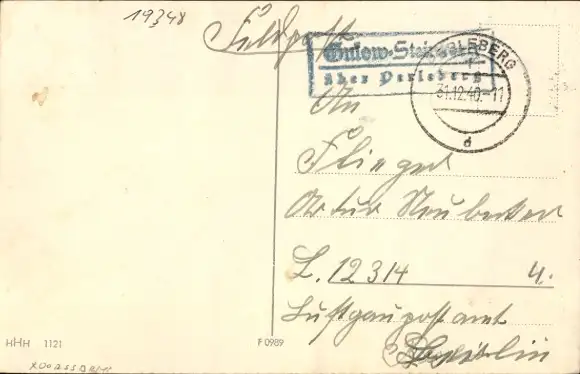 19348
Feldpost
Gulow-Steinberg
über Perleberg
PERLEBERG
31.12.40.-11
d
An
Flieger
Artur Neubecker
L. 12314 4.
Luftgaupostamt
Berlin
HHH 1121
F 0989